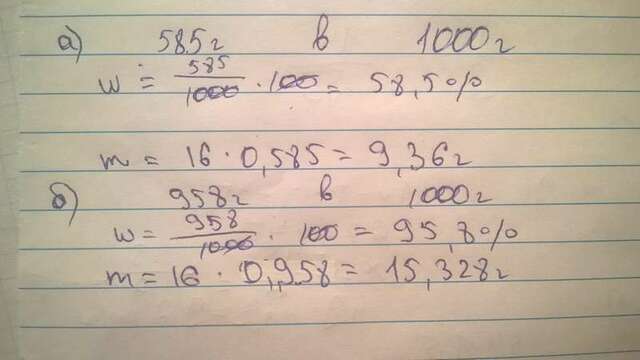 а) 585г в 1000г
w = 585/1000 · 100 = 58,5%
m = 16 · 0,585 = 9,36г
б) 958г в 1000г
w = 958/1000 · 100 = 95,8%
m = 16 · 0,958 = 15,328г